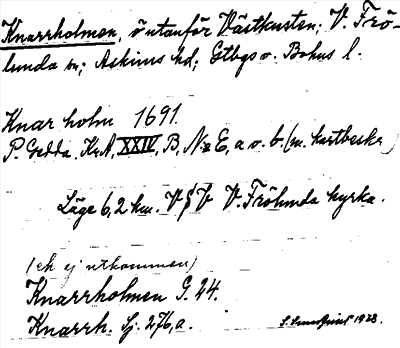 Knarrholmen, ö utanför Västkusten; V. Frö-
lunda sn; Askims hd; Gtbgs o. Bohus l.
Knar holm 1691.
P. Gedda, KrA, XXIV, B, No E, a o. b. (m. kartbeskr.)
Läge 6,2 km. V§V V. Frölunda kyrka.
(ek ej utkommen)
Knarrholmen G. 24.
Knarrh. Sj. 276, a.
1928.